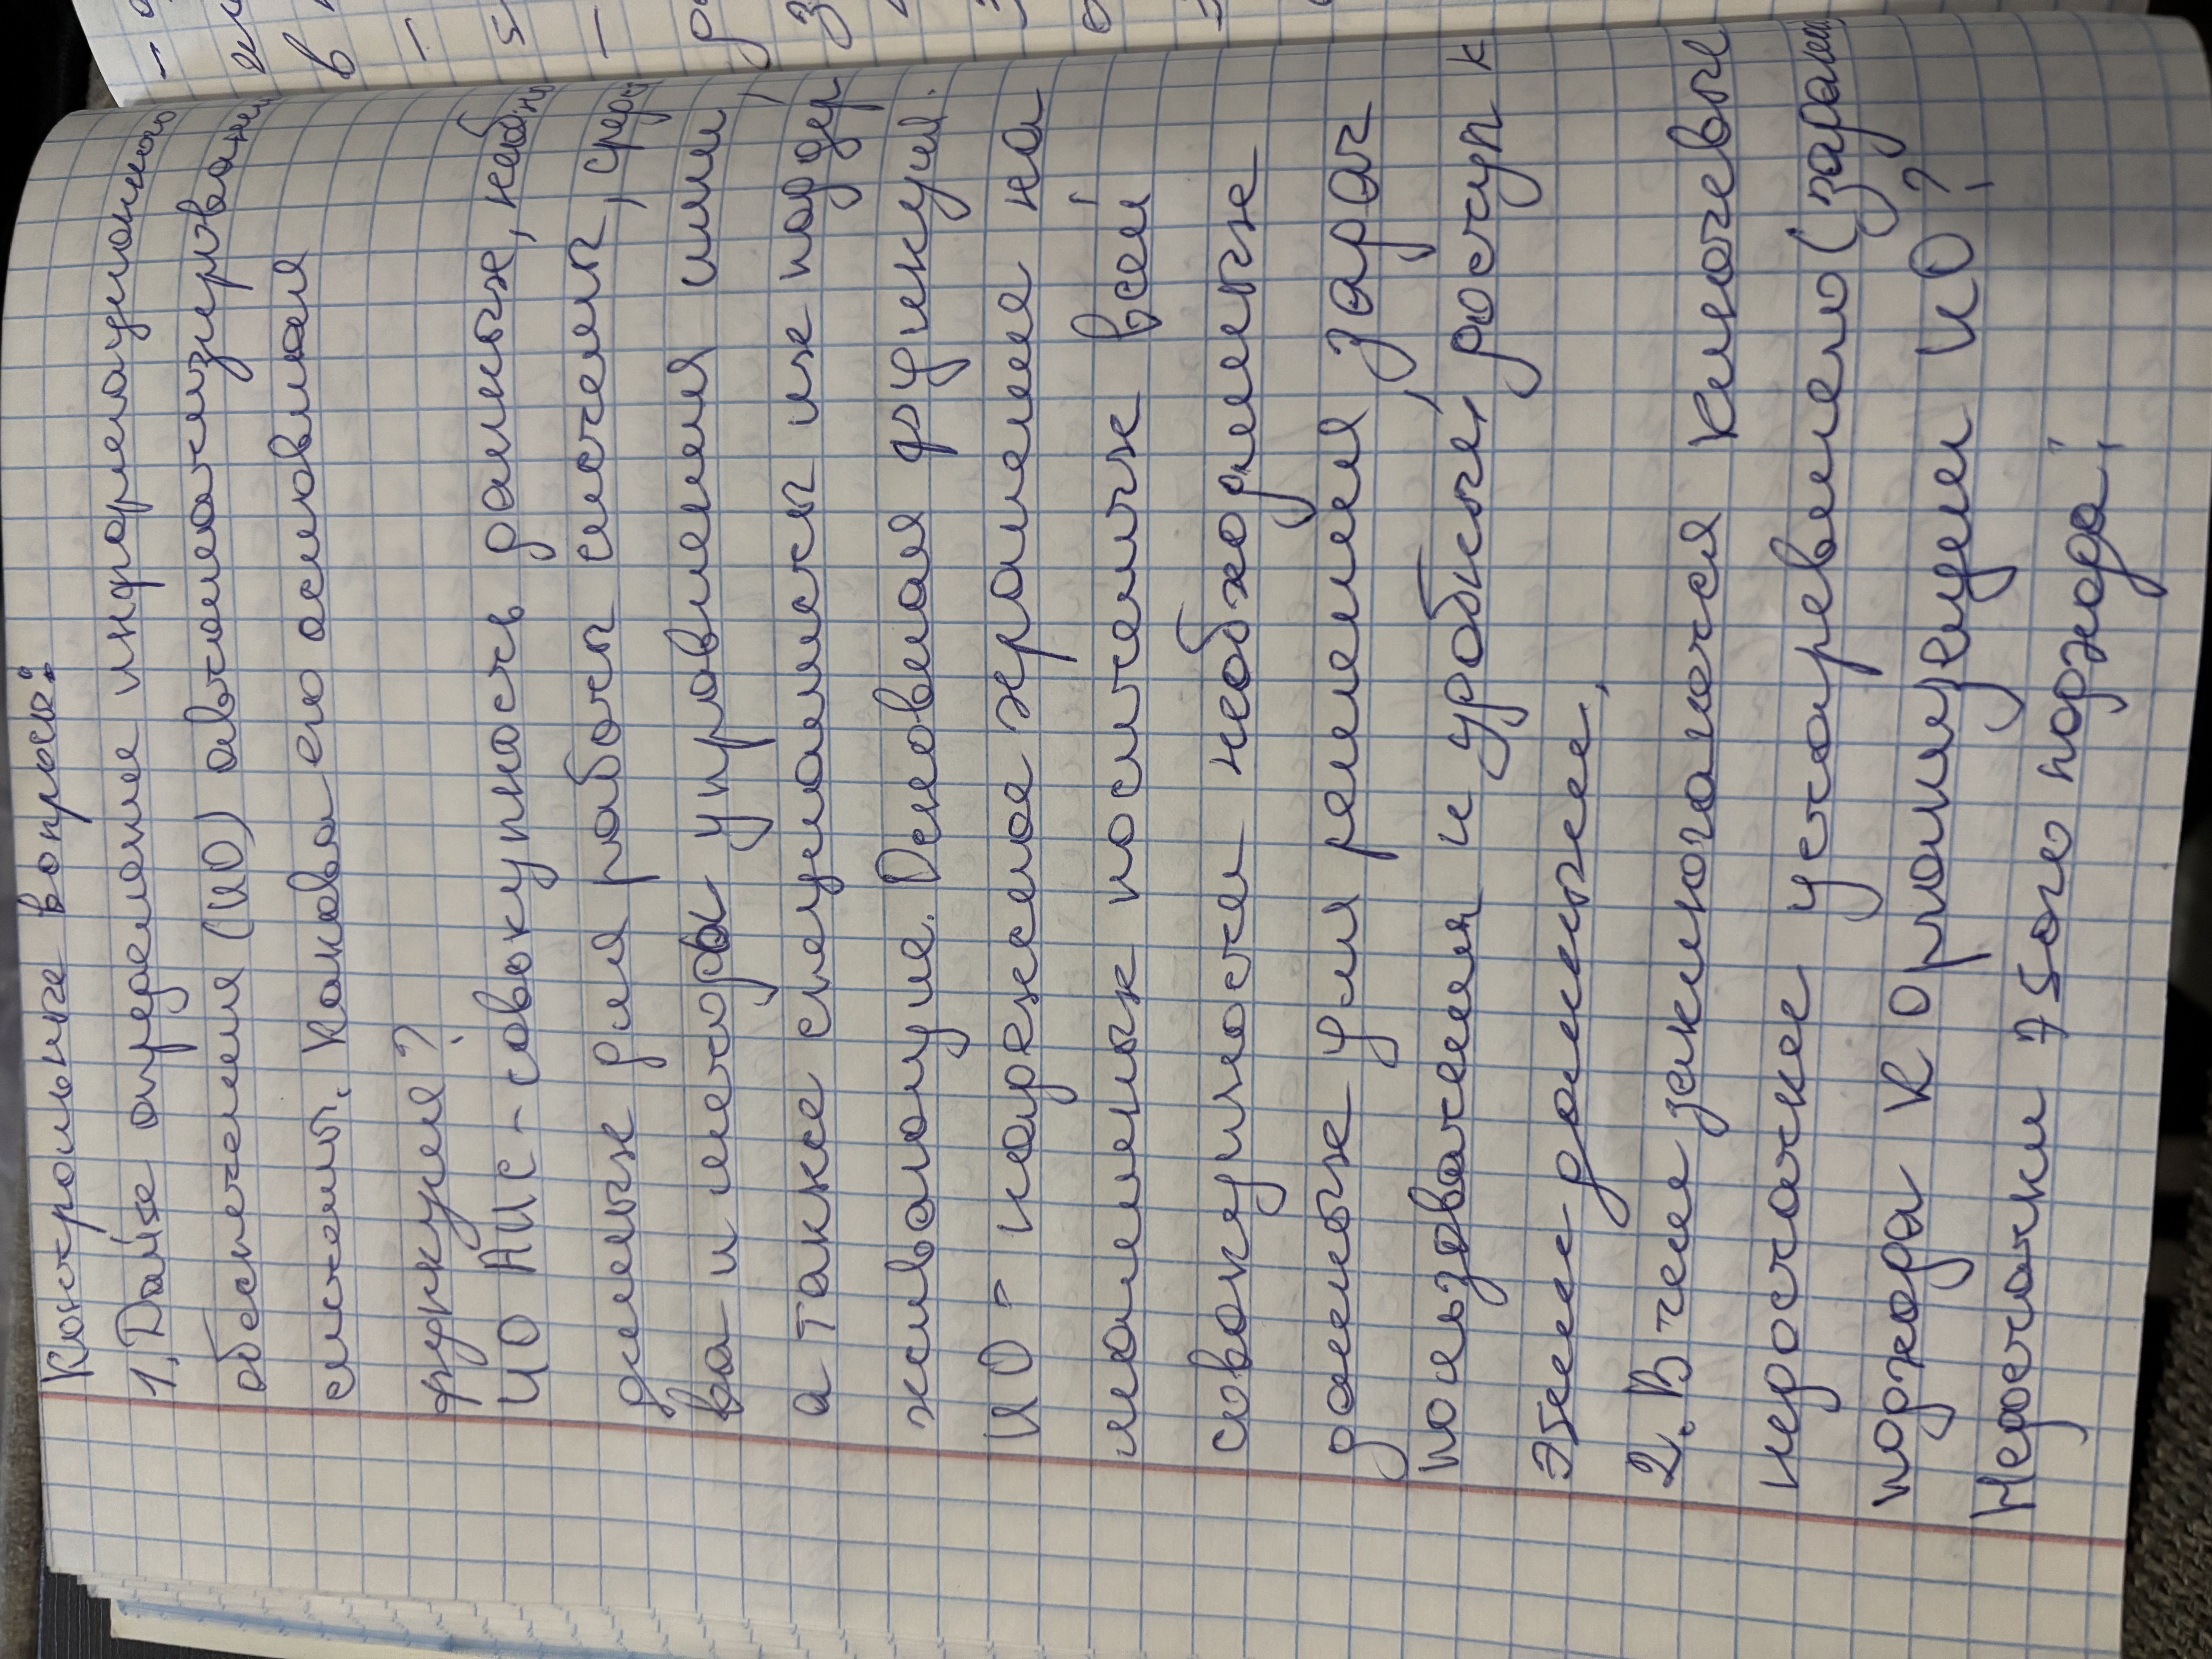 Контрольные вопросы:
1. Дайте определение информационного
обеспечения (ИО) автоматизирован
системы. Какова его основная
функция?
ИО АИС - совокупность данных, необх
димых для работы системы, средс
ва и методы управления ими,
а также специалисты их поддер
живающие. Основная функция
ИО - надежное хранение на
машинных носителях всей
совокупности необходимых
данных для решения задач
пользователя и удобный доступ к
этим данным.
2. В чем заключаются ключевые
недостатки устаревшего (задачн
подхода к организации ИО?
Недостатки этого подхода: